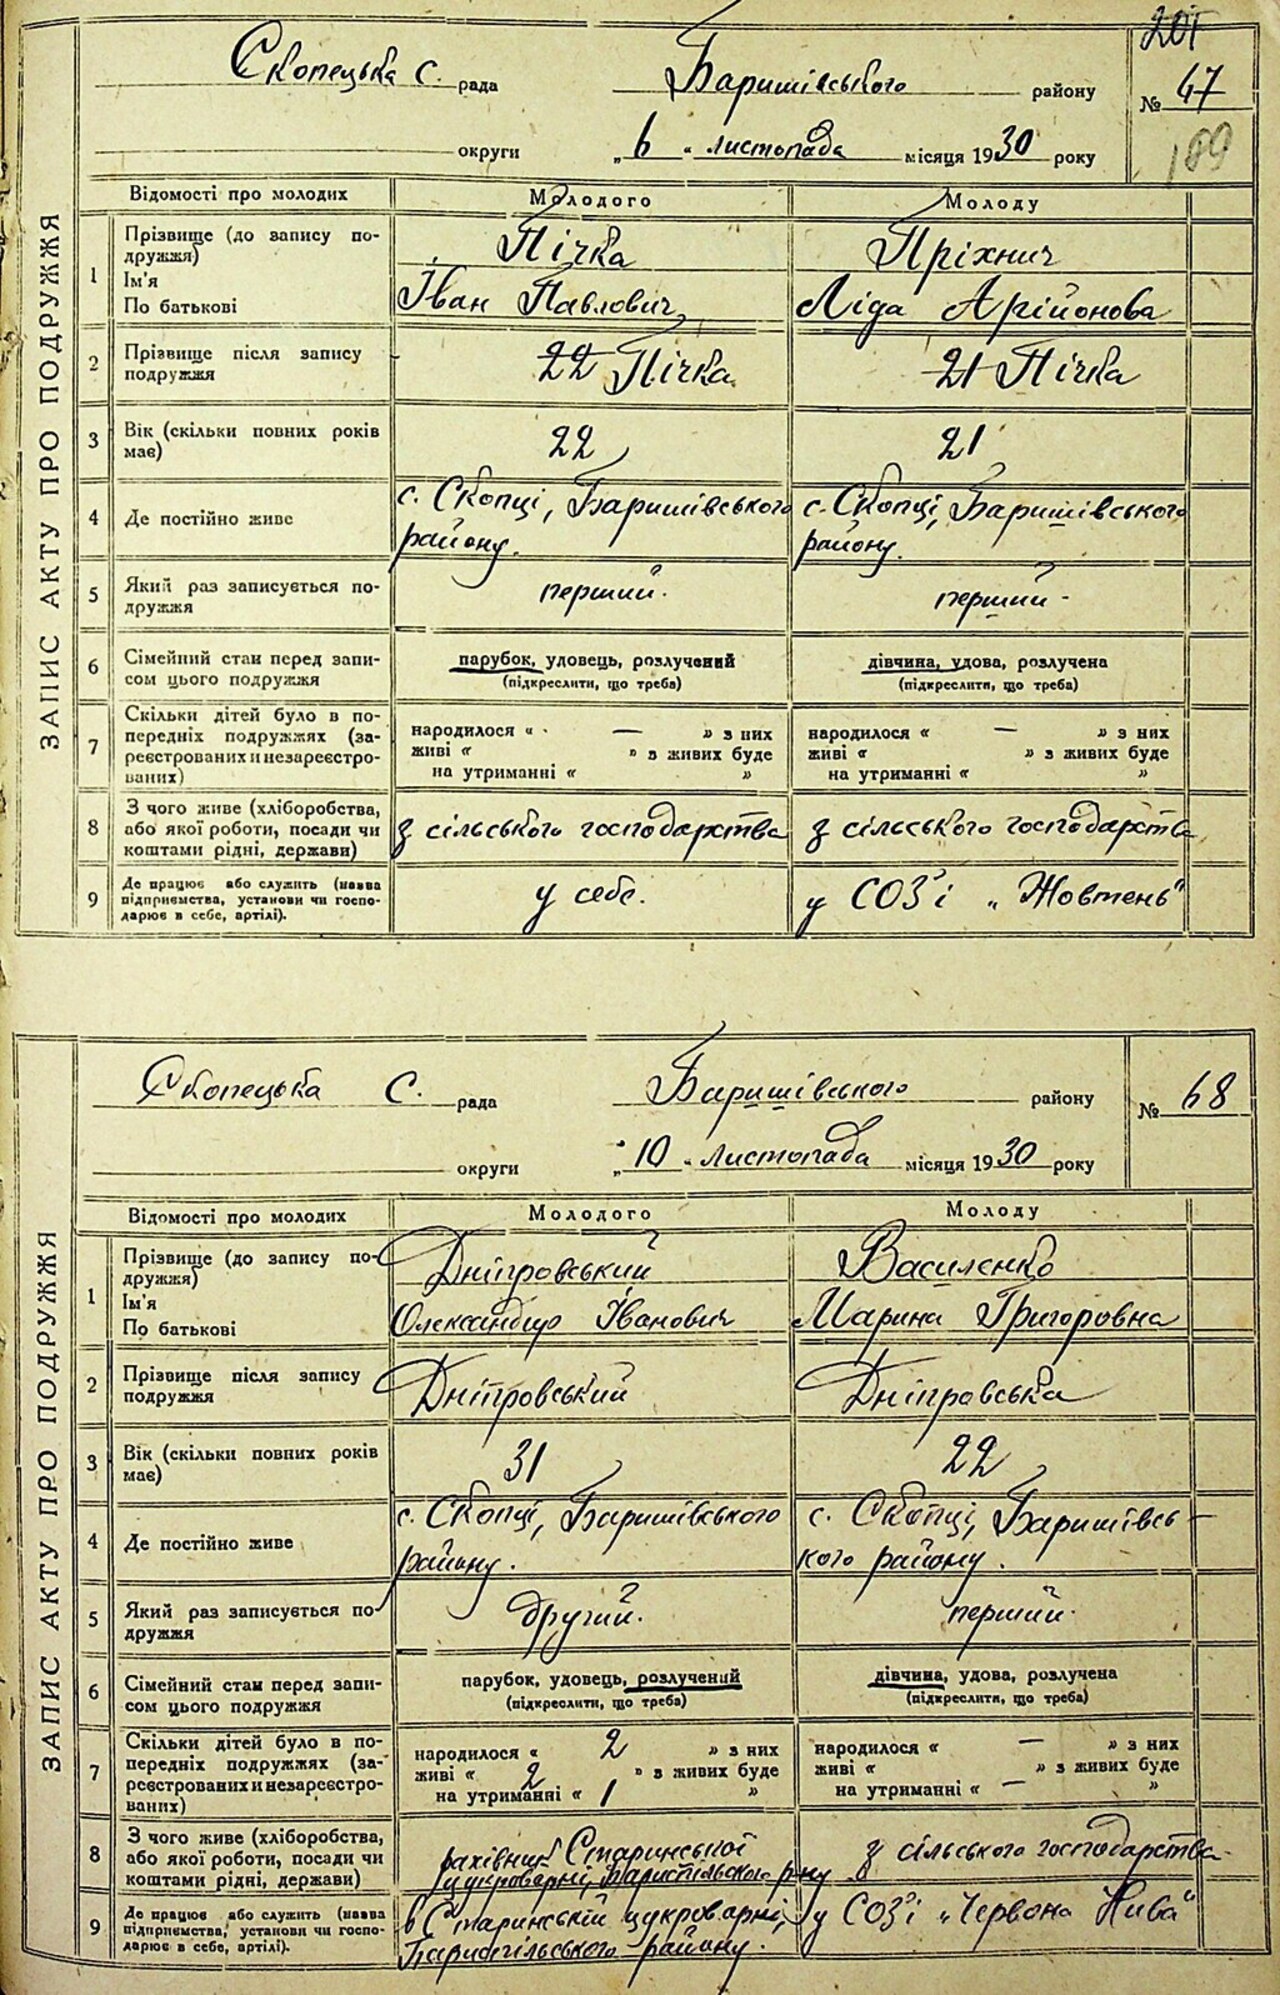 201
Скопецька с. рада Баришівського району № 67
округи „6" листопада місяця 1930 року
199
ЗАПИС АКТУ ПРО ПОДРУЖЖЯ
Відомості про молодих Молодого Молоду
1 Прізвище (до запису по-
дружжя) Пічка Пріхнич
Ім'я
По батькові Іван Павлович Ліда Арійонова
2 Прізвище після запису
подружжя 22 Пічка 21 Пічка
3 Вік (скільки повних років
має) 22 21
4 Де постійно живе с. Скопці, Баришівського
району. с. Скопці, Баришівського
району.
5 Який раз записується по-
дружжя перший. перший -
6 Сімейний стан перед запи-
сом цього подружжя парубок, удовець, розлучений
(підкреслити, що треба) дівчина, удова, розлучена
(підкреслити, що треба)
7 Скільки дітей було в по-
передніх подружжях (за-
реєстрованих и незареєстро-
ваних) народилося « — » з них
живі « » з живих буде
на утриманні « » народилося « — » з них
живі « » з живих буде
на утриманні « »
8 З чого живе (хліборобства,
або якої роботи, посади чи
коштами рідні, держави) з сільського господарства з сільського господарства
9 Де працює або служить (назва
підприємства, установи чи госпо-
дарює в себе, артілі). у себе. у СОЗ'і „Жовтень"
Скопецька С. рада Баришівського району № 68
округи „10" листопада місяця 1930 року
ЗАПИС АКТУ ПРО ПОДРУЖЖЯ
Відомості про молодих Молодого Молоду
1 Прізвище (до запису по-
дружжя) Дніпровський Василенко
Ім'я
По батькові Олександир Іванович Марина Григоровна
2 Прізвище після запису
подружжя Дніпровський Дніпровська
3 Вік (скільки повних років
має) 31 22
4 Де постійно живе с. Скопці, Баришівського
району. с. Скопці, Баришівсь-
кого району.
5 Який раз записується по-
дружжя другий. перший.
6 Сімейний стан перед запи-
сом цього подружжя парубок, удовець, розлучений
(підкреслити, що треба) дівчина, удова, розлучена
(підкреслити, що треба)
7 Скільки дітей було в по-
передніх подружжях (за-
реєстрованих и незареєстро-
ваних) народилося « 2 » з них
живі « 2 » з живих буде
на утриманні « 1 » народилося « — » з них
живі « » з живих буде
на утриманні « — »
8 З чого живе (хліборобства,
або якої роботи, посади чи
коштами рідні, держави) рахівник Старинської
цукроварні, Бариспільского р-ну з сільського господарства.
9 Де працює або служить (назва
підприємства, установи чи госпо-
дарює в себе, артілі). в Старинській цукроварні,
Бариспільського району. у СОЗ'і „Червона Нива"